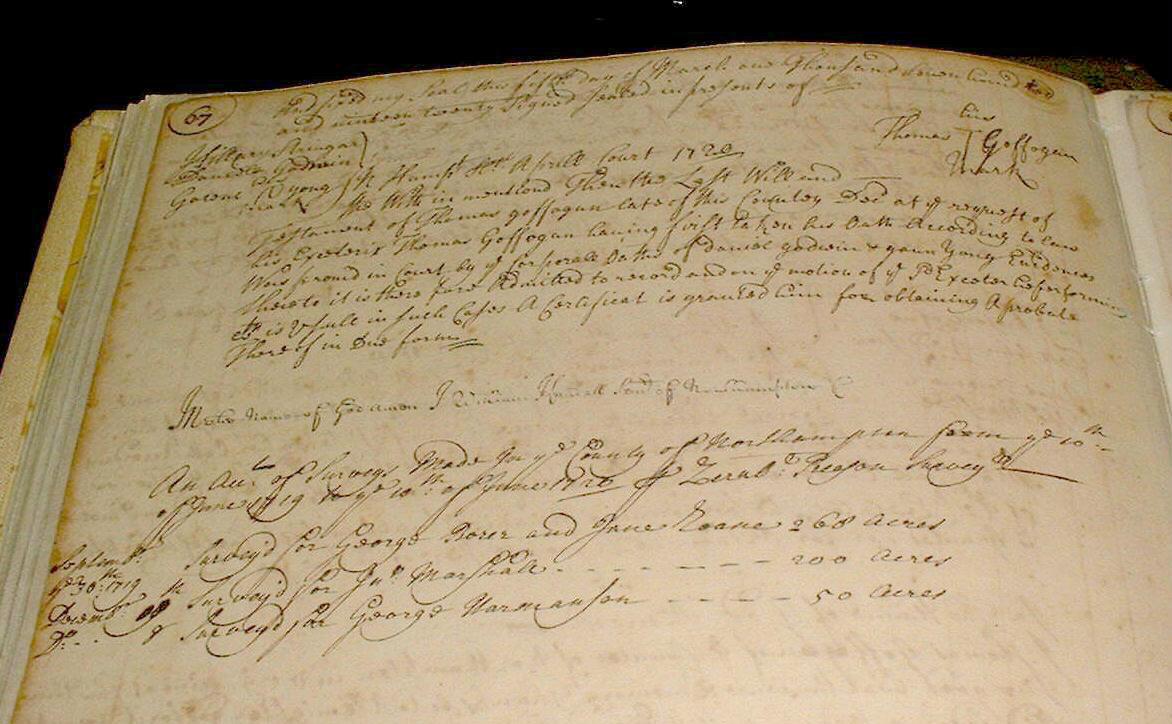 67
and fixed my Seal this fifth day of March one Thousand seven hund red
and nineteen twenty Signed Sealed in presents of
his
Thomas T Goffogan
Mark
Hillary Stringar
Daniell Godwin
Gowene young
mark
N Hampt. Ss. Aprill Court 1720
The With in mentiond Then the Last Will and
Testament of Thomas Goffogon late of this County Decd at ye request of
his Exeterix Thomas Goffogan having first taken his Oath According to law
Was proved in Court by ye Corporale Oaths of daniel godwin & gowin Young Evidences
thereto it is there fore Admitted to record and on ye motion of ye sd Exceter his performing
wt is Usuall in such Cases A Certificat is granted him for obtaining A probate
thereof in Due form
In the Name of God amen I William Senr of Northampton C
An Acct. of Surveys Made In ye County of Northampton from ye 10th
of June 1719 to ye 10th of June 1720 Survey r
Septembr ye 30th 1719 Survey'd for George and Jane 268 acres
Decembr th Survey'd for Jno Marshall - - - - - - - 200 acres
Do - Survey'd for George Harmanson - - - - 50 acres